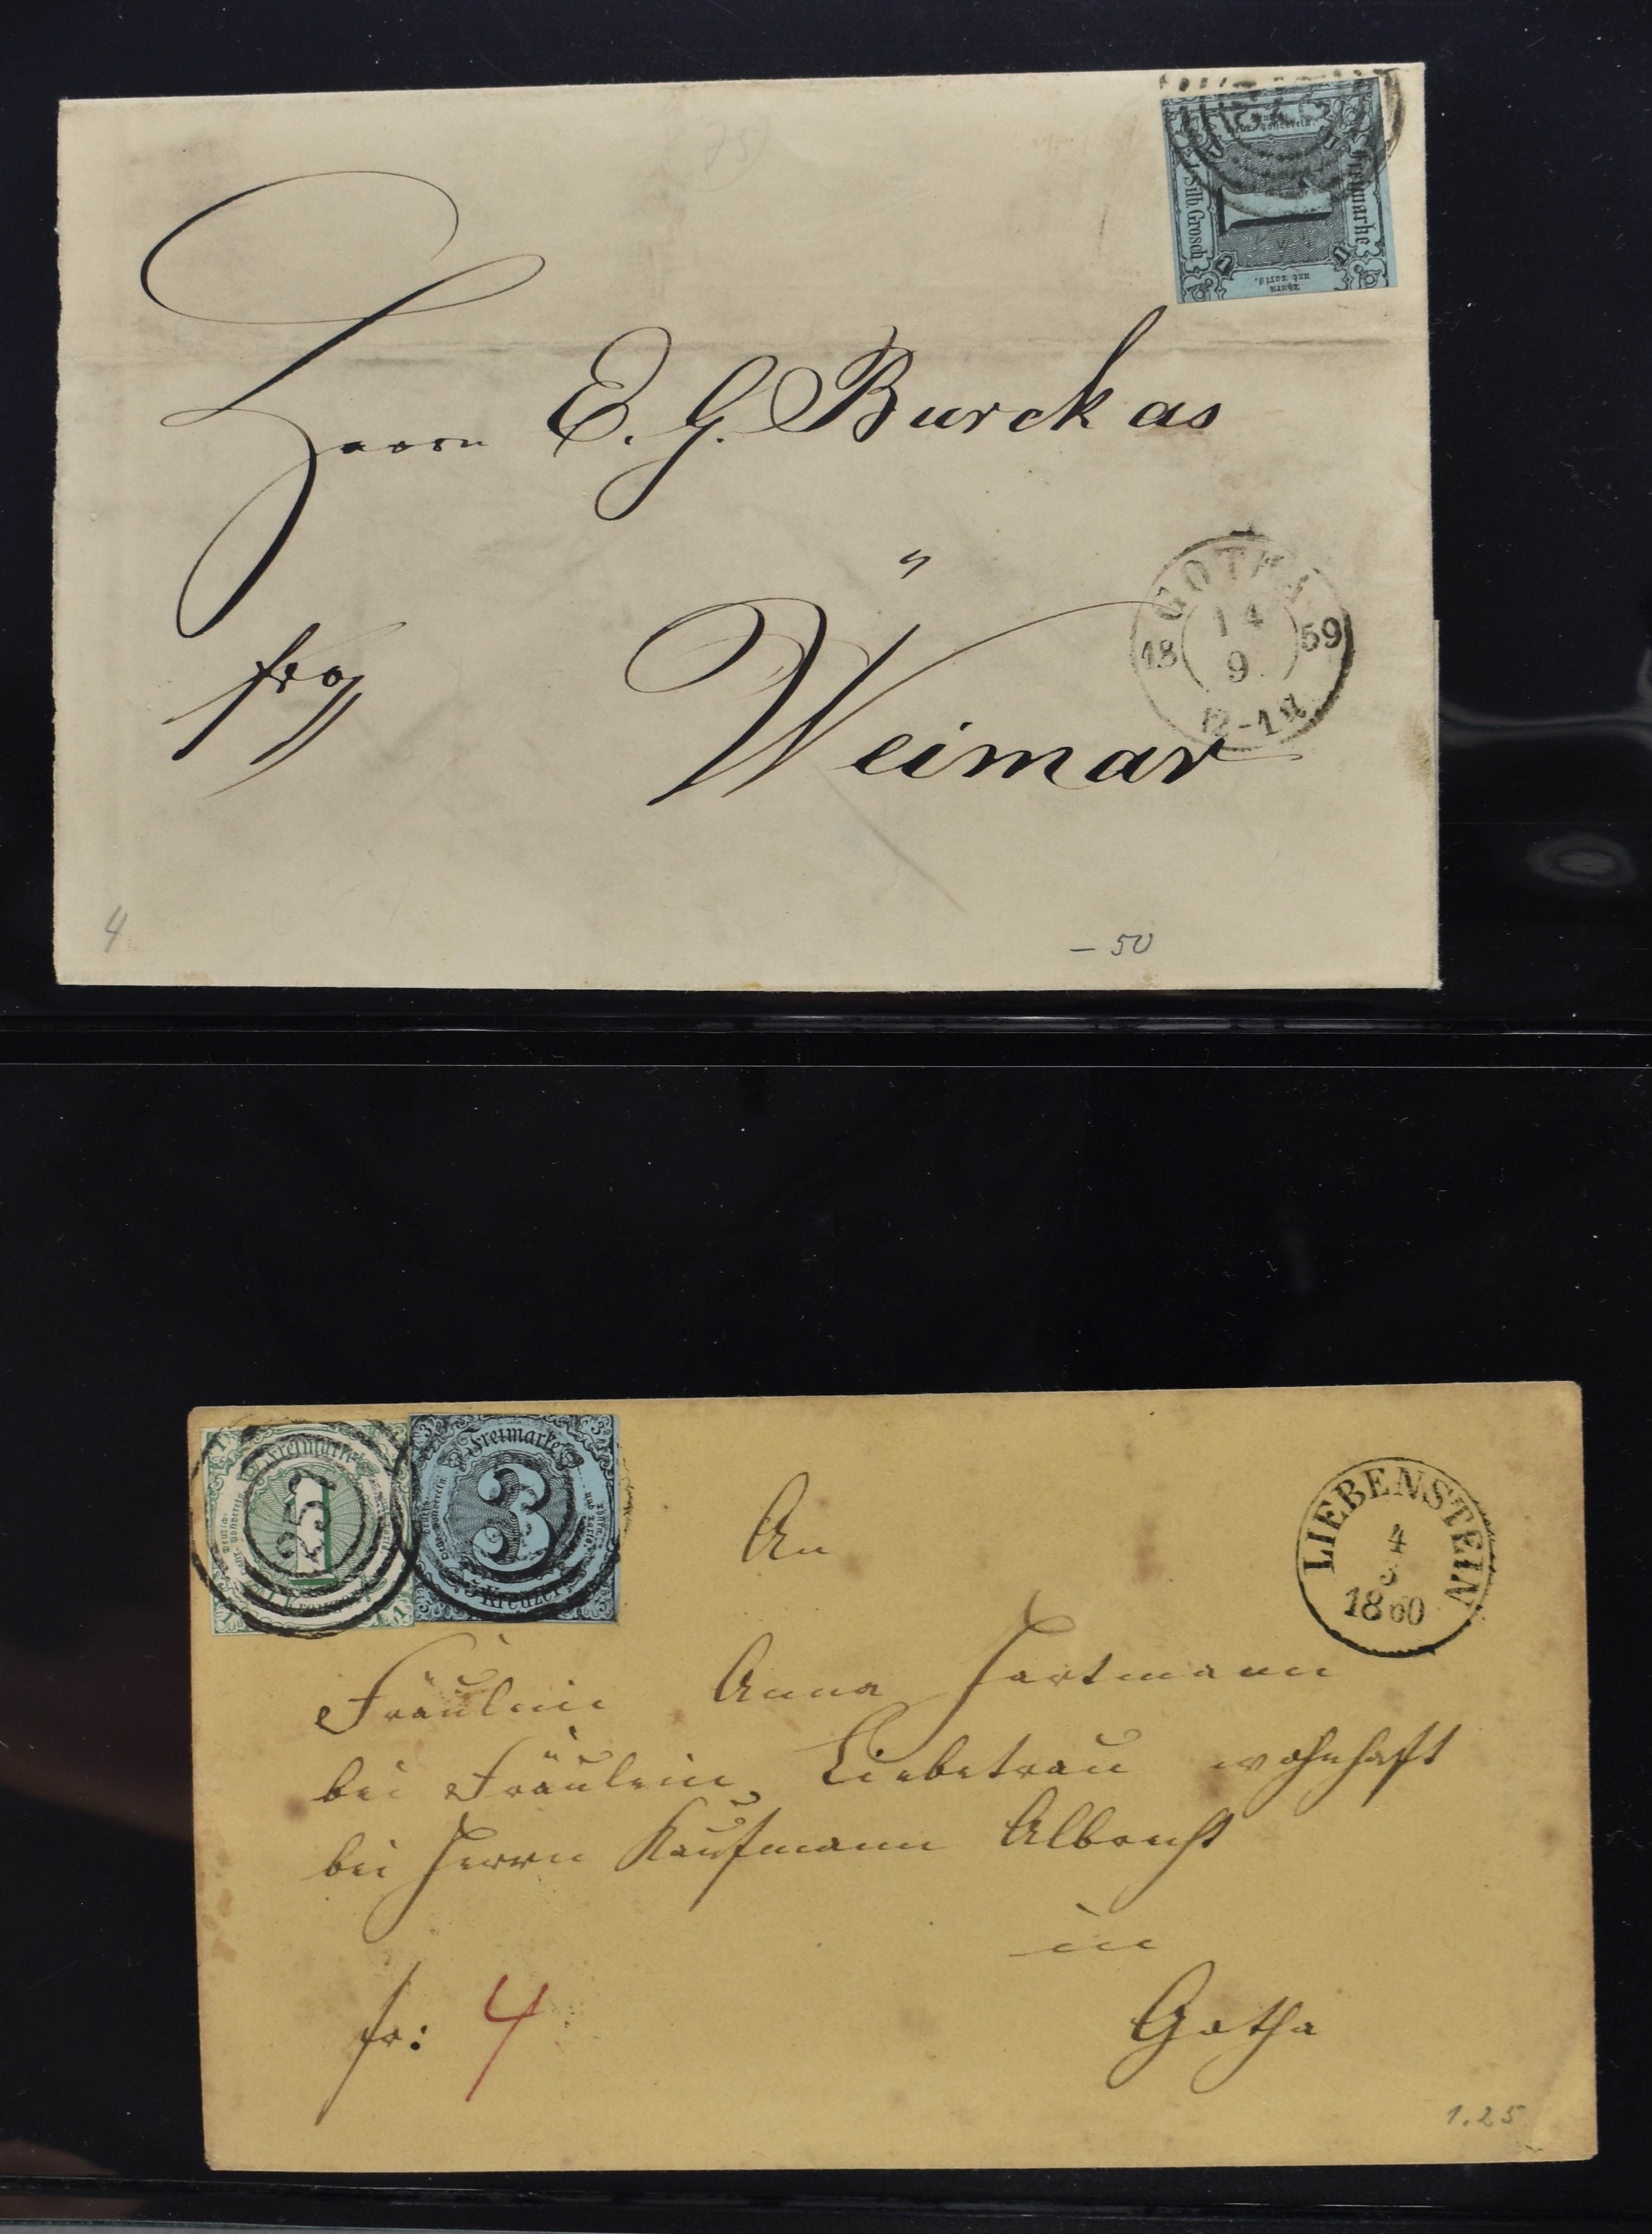 Freimarke
Silb. Grosch.
Thurn
und Taxis.
1
Herrn E. G. Burckas
Weimar
GOTHA
14
18 59
9
12-1 U
4
– 50
Freimarke
1
Kreuzer
Freimarke
3
Kreuzer
LIEBENSTEIN
4
1860
An
Fräulein Anna Hartmann
bei Fräulein Liebetrau wohnhaft
bei Herrn Kaufmann Albrecht
in
fr: 4
Gotha
1.25